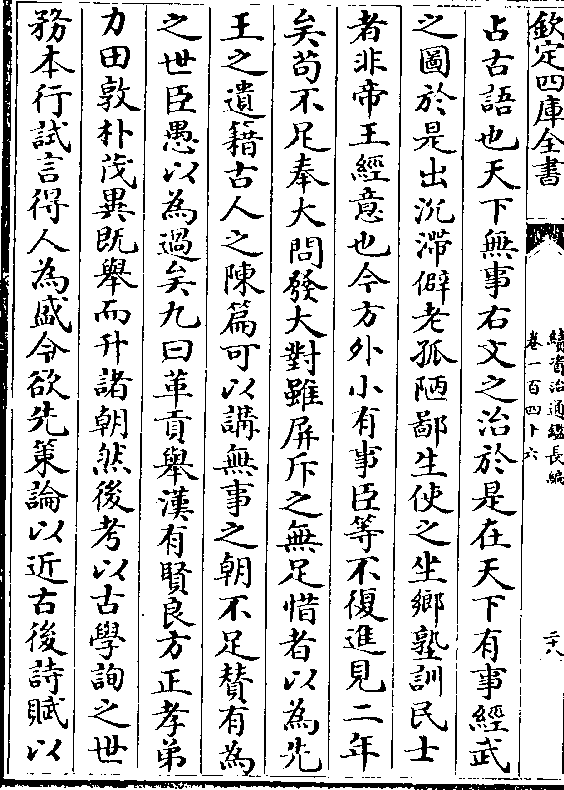 欽定四庫全書
續資治通鑑長編
卷一百四十六
二十八
占古語也天下無事右文之治於是在天下有事經武
之圖於是出沉滯僻老孤陋鄙生使之坐鄉塾訓民士
者非帝王經意也今方外小有事臣等不復進見二年
矣苟不足奉大問發大對雖屏斥之無足惜者以為先
王之遺籍古人之陳篇可以講無事之朝不足賛有為
之世臣愚以為過矣九曰革貢舉漢有賢良方正孝弟
力田敦朴茂異既舉而升諸朝然後考以古學詢之世
務本行試言得人為盛今欲先策論以近古後詩賦以